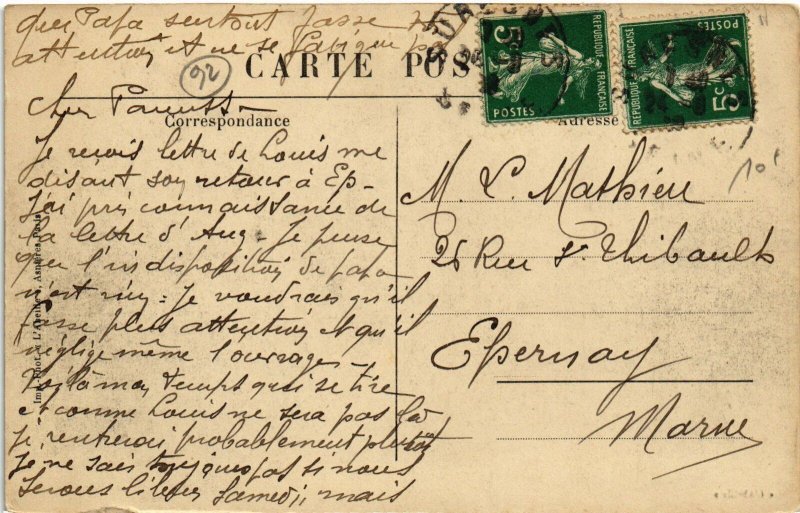 que Papa surtout fasse
attention et ne se fatigue pas
92
CARTE POS
Correspondance
Adresse
Chers Parents
Je reçois lettre de Louis me
disant son retour à Ep-
J'ai pris connaissance de
la lettre d'Aug- Je pense
que l'indisposition de papa
n'est rien: Je voudrais qu'il
fasse plus attention et qu'il
néglige même l'ouvrage-
Voilà mon temps qui se tire
et comme Louis ne sera pas là
je rentrerai probablement plutôt
Je ne sais toujours pas si nous
serons libres Samedi, mais
M. L. Mathieu
26 Rue St Thibault
Epernay
Marne
5c POSTES REPUBLIQUE FRANÇAISE
5c POSTES REPUBLIQUE FRANÇAISE
SURESNES
10f
Imp.-Phot. « L'Abeille », Asnières, Paris